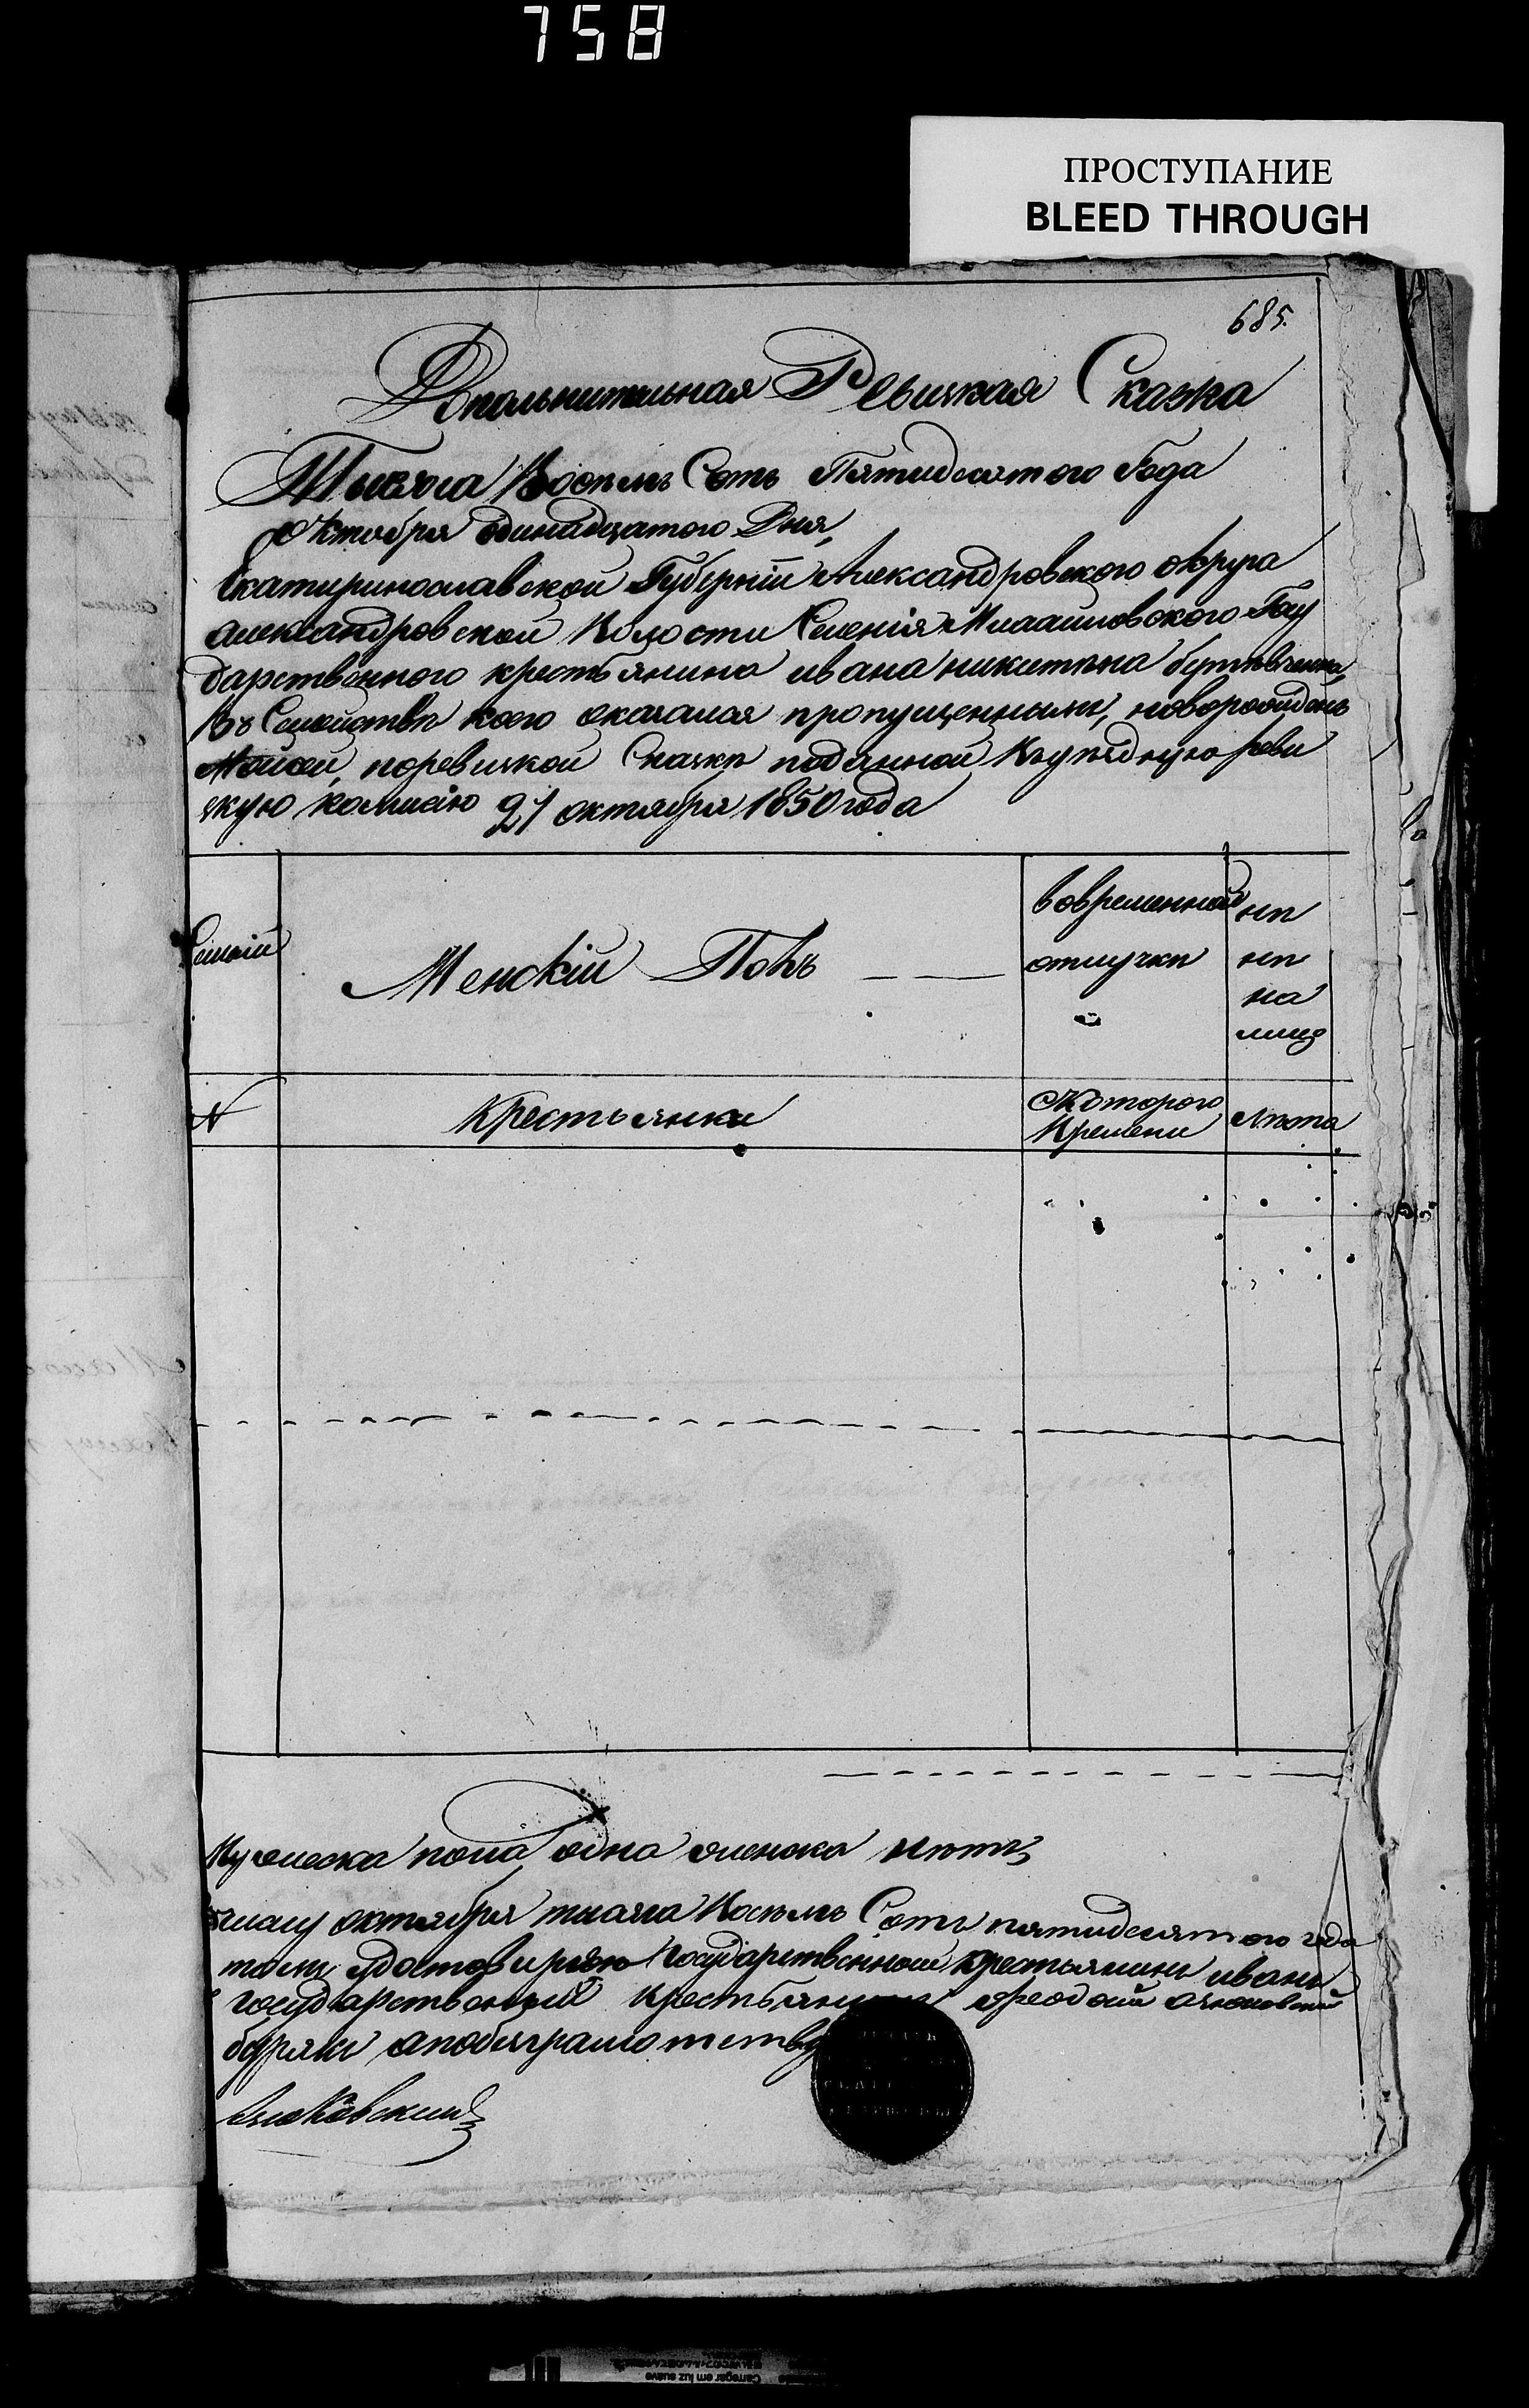 758
ПРОСТУПАНИЕ
BLEED THROUGH
685.
Дополнительная Ревизкая Сказка
Тысяча Восемь Сотъ Пятидесятого Года
Октября одинадцатого Дня,
Екатеринославской Губерніи Александровского округа
александровской Волости Селенія Михайловского Госу
дарственного крестьянина ивана никитина
Въ Семействѣ коего оказался пропущеннымъ, новорожденъ
Моисей, поревизкой Сказкѣ поданной Вуѣздную реви
зкую комисію 21 октября 1850 года
Семьи
Женскій Полъ
вовременной
отлучкѣ
нѣ
нѣ
на
лицо
N
Крестьянки
Скоторого
Времени
лѣта
Мужеска пола одна женска нѣтъ
октября тысяча Восемь Сотъ пятидесятого года
удостоверяю Государственный крестьянинъ иванъ
государственный крестьянинъ